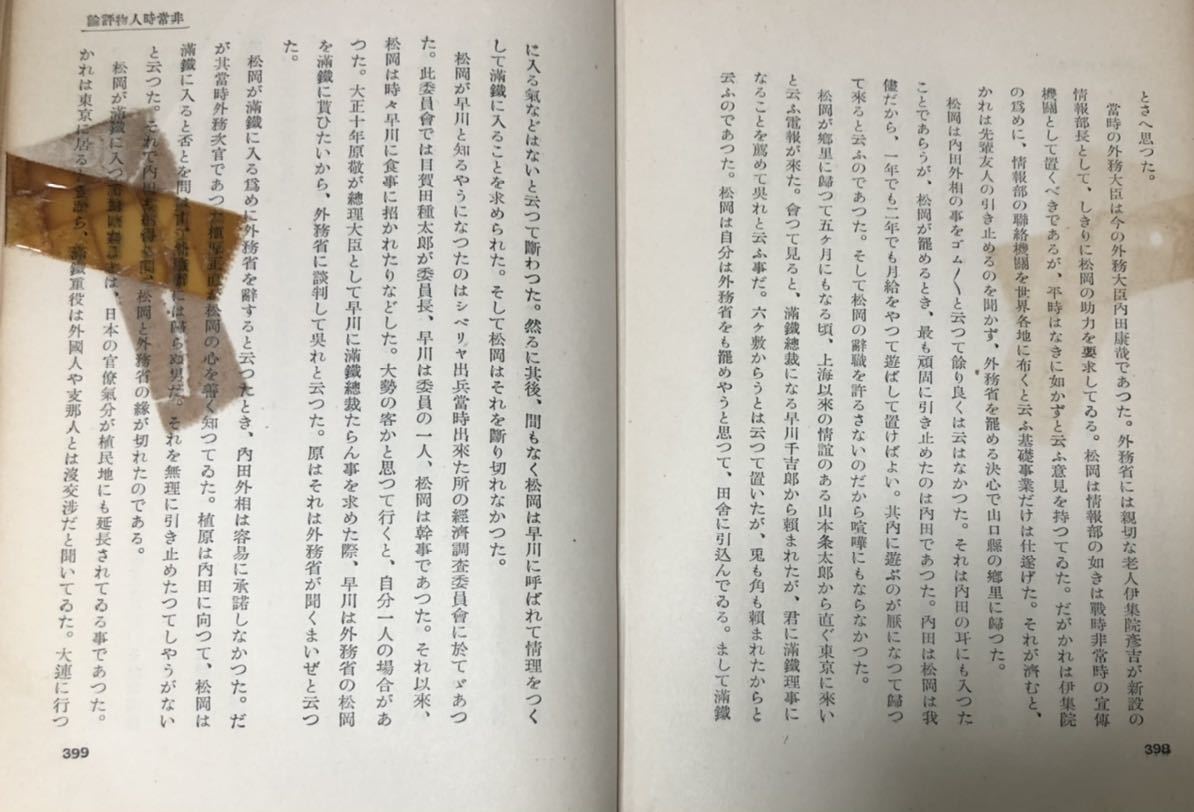 とさへ思つた。
當時の外務大臣は今の外務大臣内田康哉であつた。外務省には親切な老人伊集院彥吉が新設の
情報部長として、しきりに松岡の助力を要求してゐる。松岡は情報部の如きは戰時非常時の宣傳
機關として置くべきであるが、平時はなきに如かずと云ふ意見を持つてゐた。だがかれは伊集院
の爲めに、情報部の聯絡機關を世界各地に布くと云ふ基礎事業だけは仕遂げた。それが濟むと、
かれは先輩友人の引き止めるのを聞かず、外務省を罷める決心で山口縣の鄉里に歸つた。
松岡は内田外相の事をゴム〳〵と云つて餘り良くは云はなかつた。それは内田の耳にも入つた
ことであらうが、松岡が罷めるとき、最も頑固に引き止めたのは内田であつた。内田は松岡は我
儘だから、一年でも二年でも月給をやつて遊ばして置けばよい。其内に遊ぶのが厭になつて歸つ
て來ると云ふのであつた。そして松岡の辭職を許るさないのだから喧嘩にもならなかつた。
松岡が鄉里に歸つて五ヶ月にもなる頃、上海以來の情誼のある山本条太郎から直ぐ東京に來い
と云ふ電報が來た。會つて見ると、滿鐵總裁になる早川千吉郎から賴まれたが、君に滿鐵理事に
なることを薦めて吳れと云ふ事だ。六ヶ敷からうとは云つて置いたが、兎も角も賴まれたからと
云ふのであつた。松岡は自分は外務省をも罷めやうと思つて、田舍に引込んでゐる。まして滿鐵
398
非常時人物評論
に入る氣などはないと云つて斷わつた。然るに其後、間もなく松岡は早川に呼ばれて情理をつく
して滿鐵に入ることを求められた。そして松岡はそれを斷り切れなかつた。
松岡が早川と知るやうになつたのはシベリヤ出兵當時出來た所の經濟調査委員會に於てゞあつ
た。此委員會では目賀田種太郎が委員長、早川は委員の一人、松岡は幹事であつた。それ以來、
松岡は時々早川に食事に招かれたりなどした。大勢の客かと思つて行くと、自分一人の場合があ
つた。大正十年原敬が總理大臣として早川に滿鐵總裁たらん事を求めた際、早川は外務省の松岡
を滿鐵に貰ひたいから、外務省に談判して吳れと云つた。原はそれは外務省が聞くまいぜと云つ
た。
松岡が滿鐵に入る爲めに外務省を辭すると云つたとき、内田外相は容易に承諾しなかつた。だ
が其當時外務次官であつた植原正直が松岡の心を善く知つてゐた。植原は内田に向つて、松岡は
滿鐵に入ると否とを問はず、外務省には歸らぬ男だ。それを無理に引き止めたつてしやうがない
と云つた。それで内田も松岡と外務省の緣が切れたのである。
松岡が滿鐵に入つは、日本の官僚氣分が植民地にも延長されてゐる事であつた。
かれは東京に居るときから、滿鐵重役は外國人や支那人とは沒交涉だと聞いてゐた。大連に行つ
399